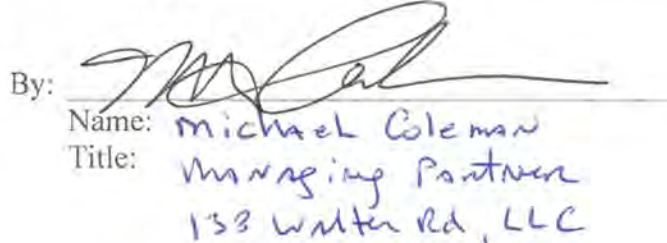 By:
Name: Michael Coleman
Title: Managing Partner
133 Walter Rd, LLC